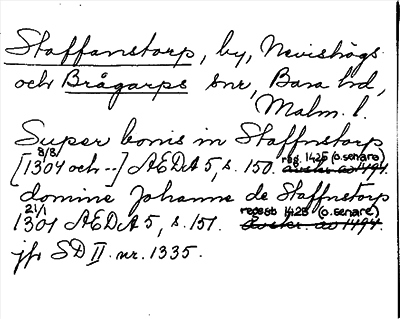 Staffanstorp, by, Nevishögs
och Brågarps snr, Bara hd,
Malm. l.
Super bonis in Staffnstorp
8/8
[1304 och --] AEDA 5, s. 150. reg. 1425 (o. senare) avskr. av 1494.
domine Johanne de Staffnstorp
21/1
1301 AEDA 5, s. 151. regest 1425 (o. senare) Avskr. av 1494.
jfr SD II nr. 1335.